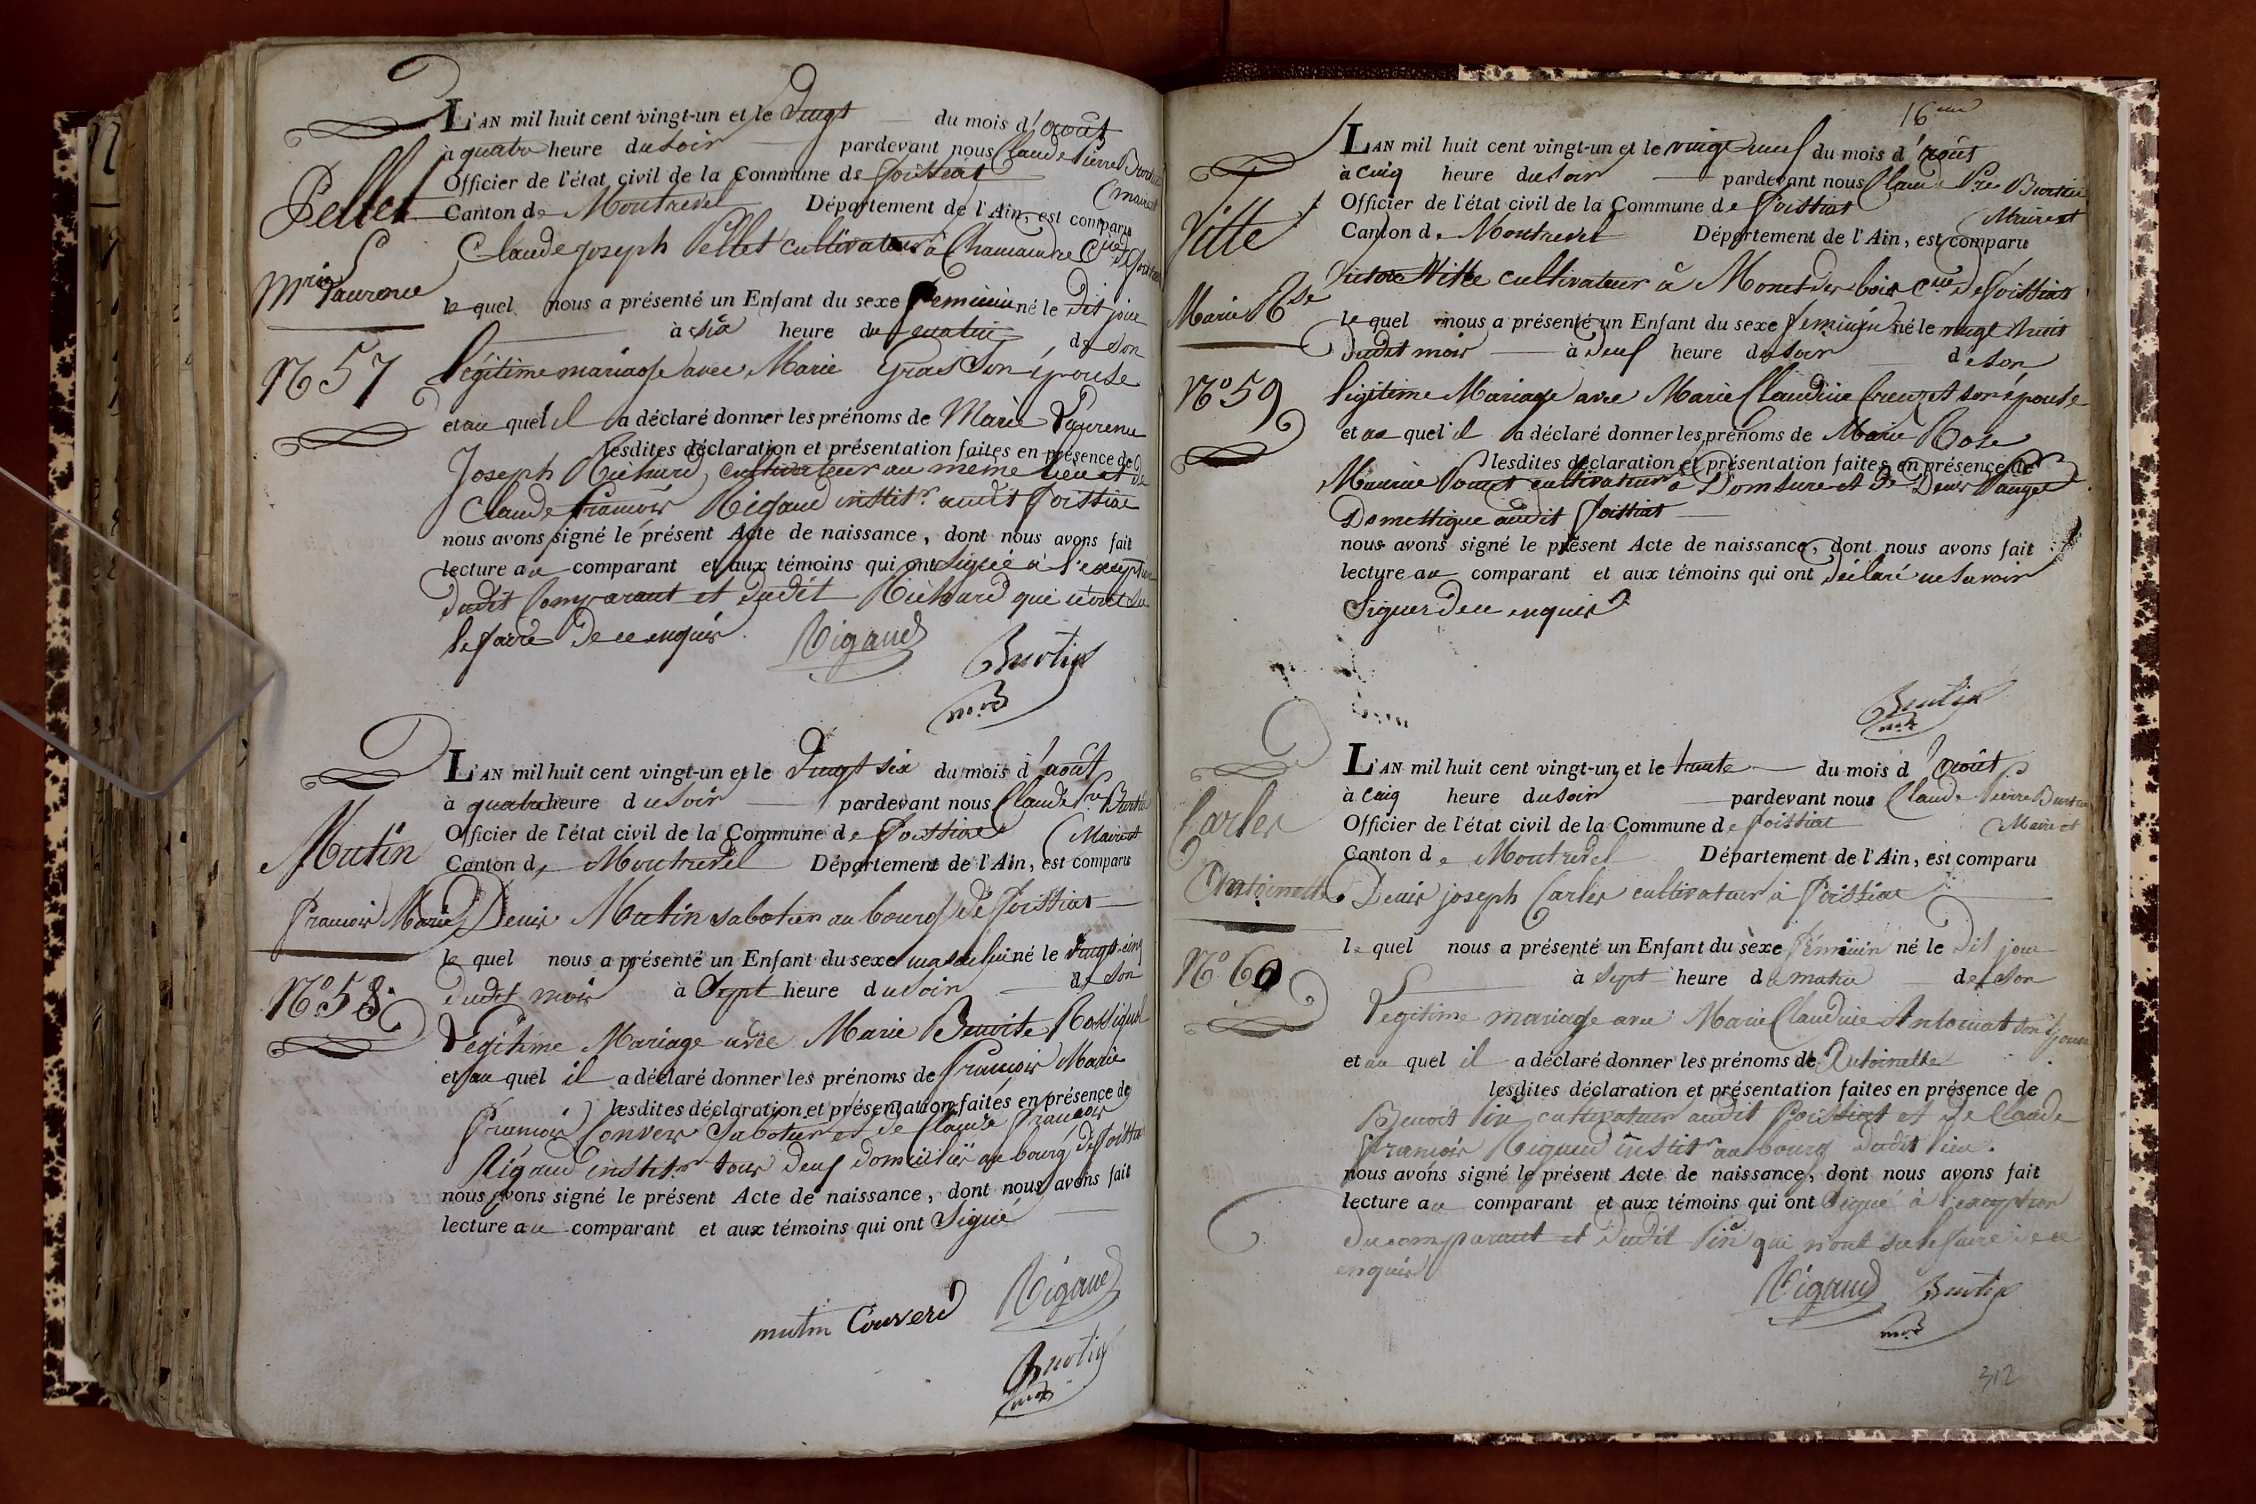 L'AN mil huit cent vingt-un et le vingt du mois d'août
à quatre heure du soir pardevant nous Claude Pierre Burtin
Officier de l'état civil de la Commune de Foissiat Maire et
Pellet
Canton de Montrevel Département de l'Ain, est comparu
Claude Joseph Pellet cultivateur à Chamandre Cne de Foissiat
Mrie Laurence
le quel nous a présenté un Enfant du sexe féminin né le dit jour
à six heure du matin de son
N° 57
légitime mariage avec Marie Gras son épouse
et au quel il a déclaré donner les prénoms de Marie Laurence
lesdites déclaration et présentation faites en présence de
Joseph Richard, cultivateur au même lieu et de
Claude françois Rigaud instit.r audit foissiat
nous avons signé le présent Acte de naissance, dont nous avons fait
lecture au comparant et aux témoins qui ont signé à l'exception
dudit Comparant et dudit Richard qui n'ont su
le faire de ce enquis
Rigaud
Burtin
mre
L'AN mil huit cent vingt-un et le vingt six du mois d'août
à quatre heure du soir pardevant nous Claude Pre Burtin
Officier de l'état civil de la Commune de Foissiat Maire et
Mutin
Canton de Montrevel Département de l'Ain, est comparu
françois Marie
Denis Mutin sabotier au bourg de foissiat
le quel nous a présenté un Enfant du sexe masculin né le vingt-cinq
N° 58.
dudit mois à Sept heure du soir de son
Légitime Mariage avec Marie Benoite Rossignol
et au quel il a déclaré donner les prénoms de françois Marie
lesdites déclaration et présentation faites en présence de
françois Convers Sabotier et de Claude françois
Rigaud instit.r tous deux domiciliés au bourg de foissiat
nous avons signé le présent Acte de naissance, dont nous avons fait
lecture au comparant et aux témoins qui ont Signé
Rigaud
mutin Convers
Burtin
mre
16
L'AN mil huit cent vingt-un et le vingt neuf du mois d'août
à cinq heure du soir pardevant nous Claude Pre Burtin
Officier de l'état civil de la Commune de foissiat Maire et
Vitte
Canton de Montrevel Département de l'Ain, est comparu
Victor Vitte cultivateur à Monet des bois Cne de foissiat
Marie Rse
le quel nous a présenté un Enfant du sexe féminin né le vingt huit
dudit mois à deux heure du soir de son
N° 59
légitime Mariage avec Marie Claudine Creuzet son épouse
et au quel il a déclaré donner les prénoms de Marie Rose
lesdites déclaration et présentation faites en présence de
Maurice cultivateur à Domsure et de Denis
Domestique audit foissiat
nous avons signé le présent Acte de naissance, dont nous avons fait
lecture au comparant et aux témoins qui ont déclaré ne savoir
Signer de ce enquis
Burtin
mre
L'AN mil huit cent vingt-un et le trente du mois d'août
à cinq heure du soir pardevant nous Claude Pierre Burtin
Carlet
Officier de l'état civil de la Commune de foissiat Maire et
Canton de Montrevel Département de l'Ain, est comparu
Antoinette
Denis joseph Carlet cultivateur à foissiat
le quel nous a présenté un Enfant du sexe féminin né le dit jour
N° 60
à sept heure du matin de son
légitime mariage avec Marie Claudine Antoinat son épouse
et au quel il a déclaré donner les prénoms de Antoinette
lesdites déclaration et présentation faites en présence de
Benoit cultivateur audit foissiat et de Claude
françois Rigaud instit.r au bourg dudit lieu.
nous avons signé le présent Acte de naissance, dont nous avons fait
lecture au comparant et aux témoins qui ont signé à l'exception
du comparant et dudit qui n'ont su le faire de ce
enquis
Rigaud Burtin
mre
312